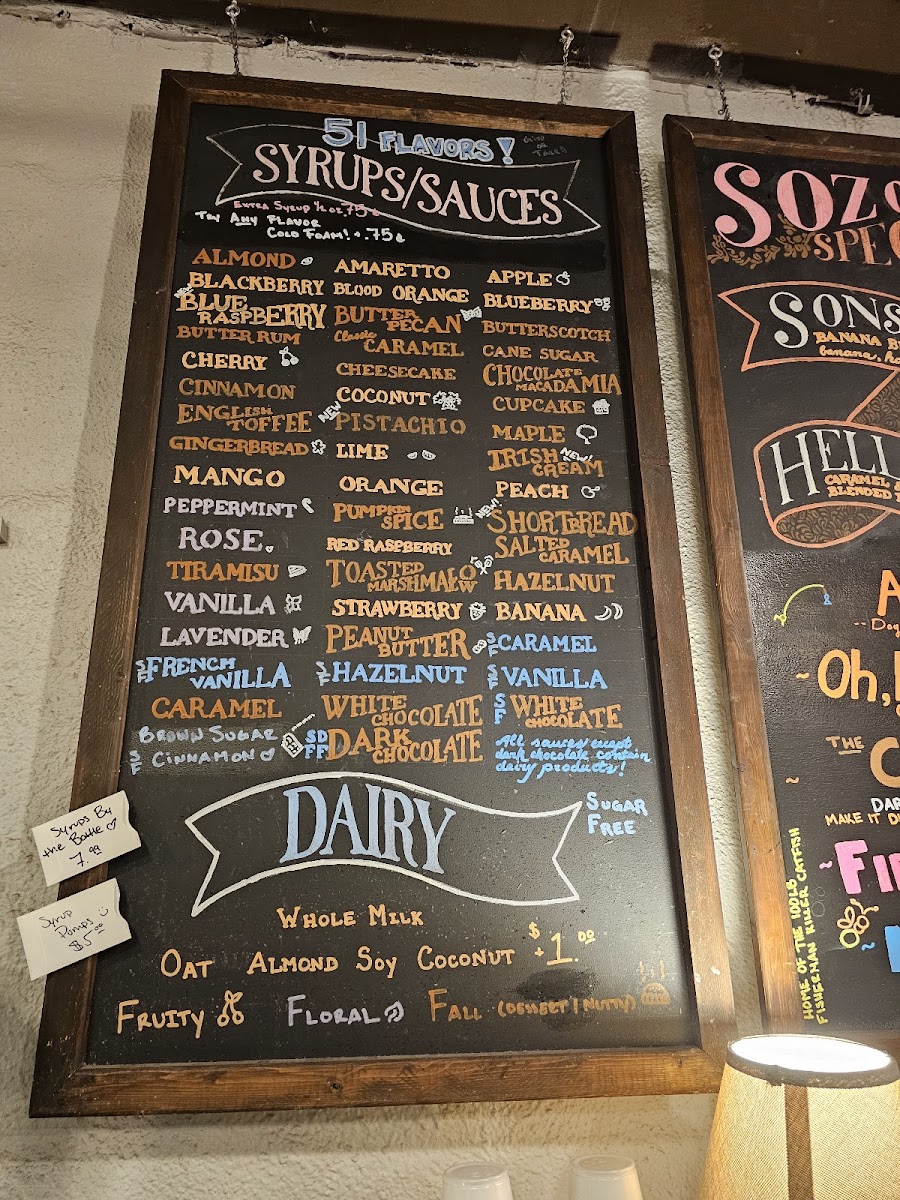 51 FLAVORS!
SYRUPS/SAUCES
EXTRA SYRUP ½ OZ .75¢
TRY ANY FLAVOR
COLD FOAM! + .75¢
ALMOND AMARETTO APPLE
BLACKBERRY BLOOD ORANGE BLUEBERRY
BLUE RASPBERRY BUTTER PECAN BUTTERSCOTCH
BUTTER RUM Classic CARAMEL CANE SUGAR
CHERRY CHEESECAKE CHOCOLATE MACADAMIA
CINNAMON COCONUT CUPCAKE
ENGLISH TOFFEE NEW PISTACHIO MAPLE
GINGERBREAD LIME IRISH CREAM NEW!
MANGO ORANGE PEACH
PEPPERMINT PUMPKIN SPICE NEW! SHORTBREAD
ROSE RED RASPBERRY SALTED CARAMEL
TIRAMISU TOASTED MARSHMALOW HAZELNUT
VANILLA STRAWBERRY BANANA
LAVENDER PEANUT BUTTER SF CARAMEL
SF FRENCH VANILLA SF HAZELNUT SF VANILLA
CARAMEL WHITE CHOCOLATE SF WHITE CHOCOLATE
BROWN SUGAR
SF CINNAMON SF DF DARK CHOCOLATE
All sauces except
dark chocolate contain
dairy products!
SUGAR
FREE
DAIRY
WHOLE MILK
OAT ALMOND SOY COCONUT $ +1.00
FRUITY FLORAL FALL (DESSERT | NUTTY)
Syrups By
the Bottle
7.99
Syrup
Pumps
$5.00
SOZO
SPEC
SONS
BANANA B
banana, ha
HELL
CARAMEL
BLENDED
Dog
Oh,
THE
C
DAR
MAKE IT D
FI
HOME OF THE 100LB
FISHERMAN KILLER CATFISH